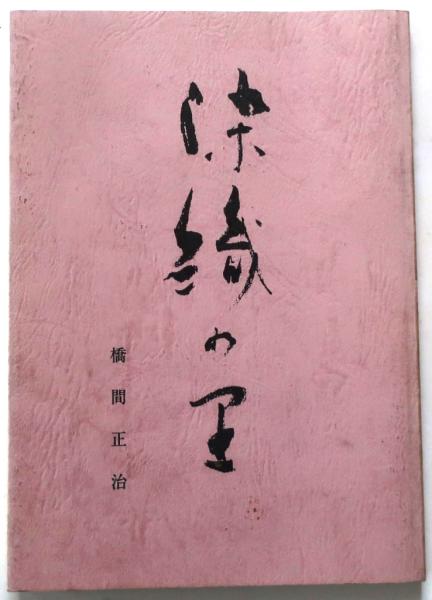 染織の里
橋間正治